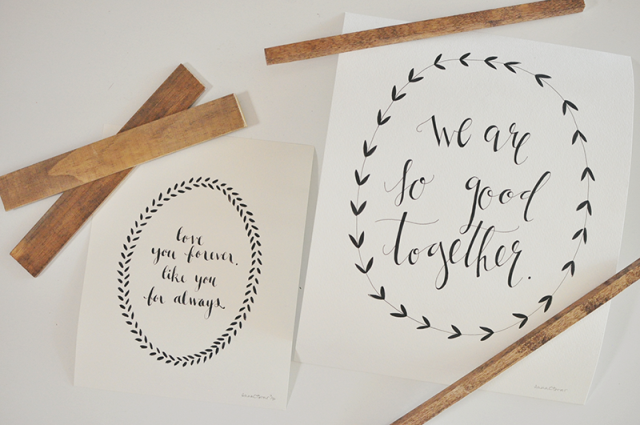 love
you forever.
like you
for always.
we are
so good
together.